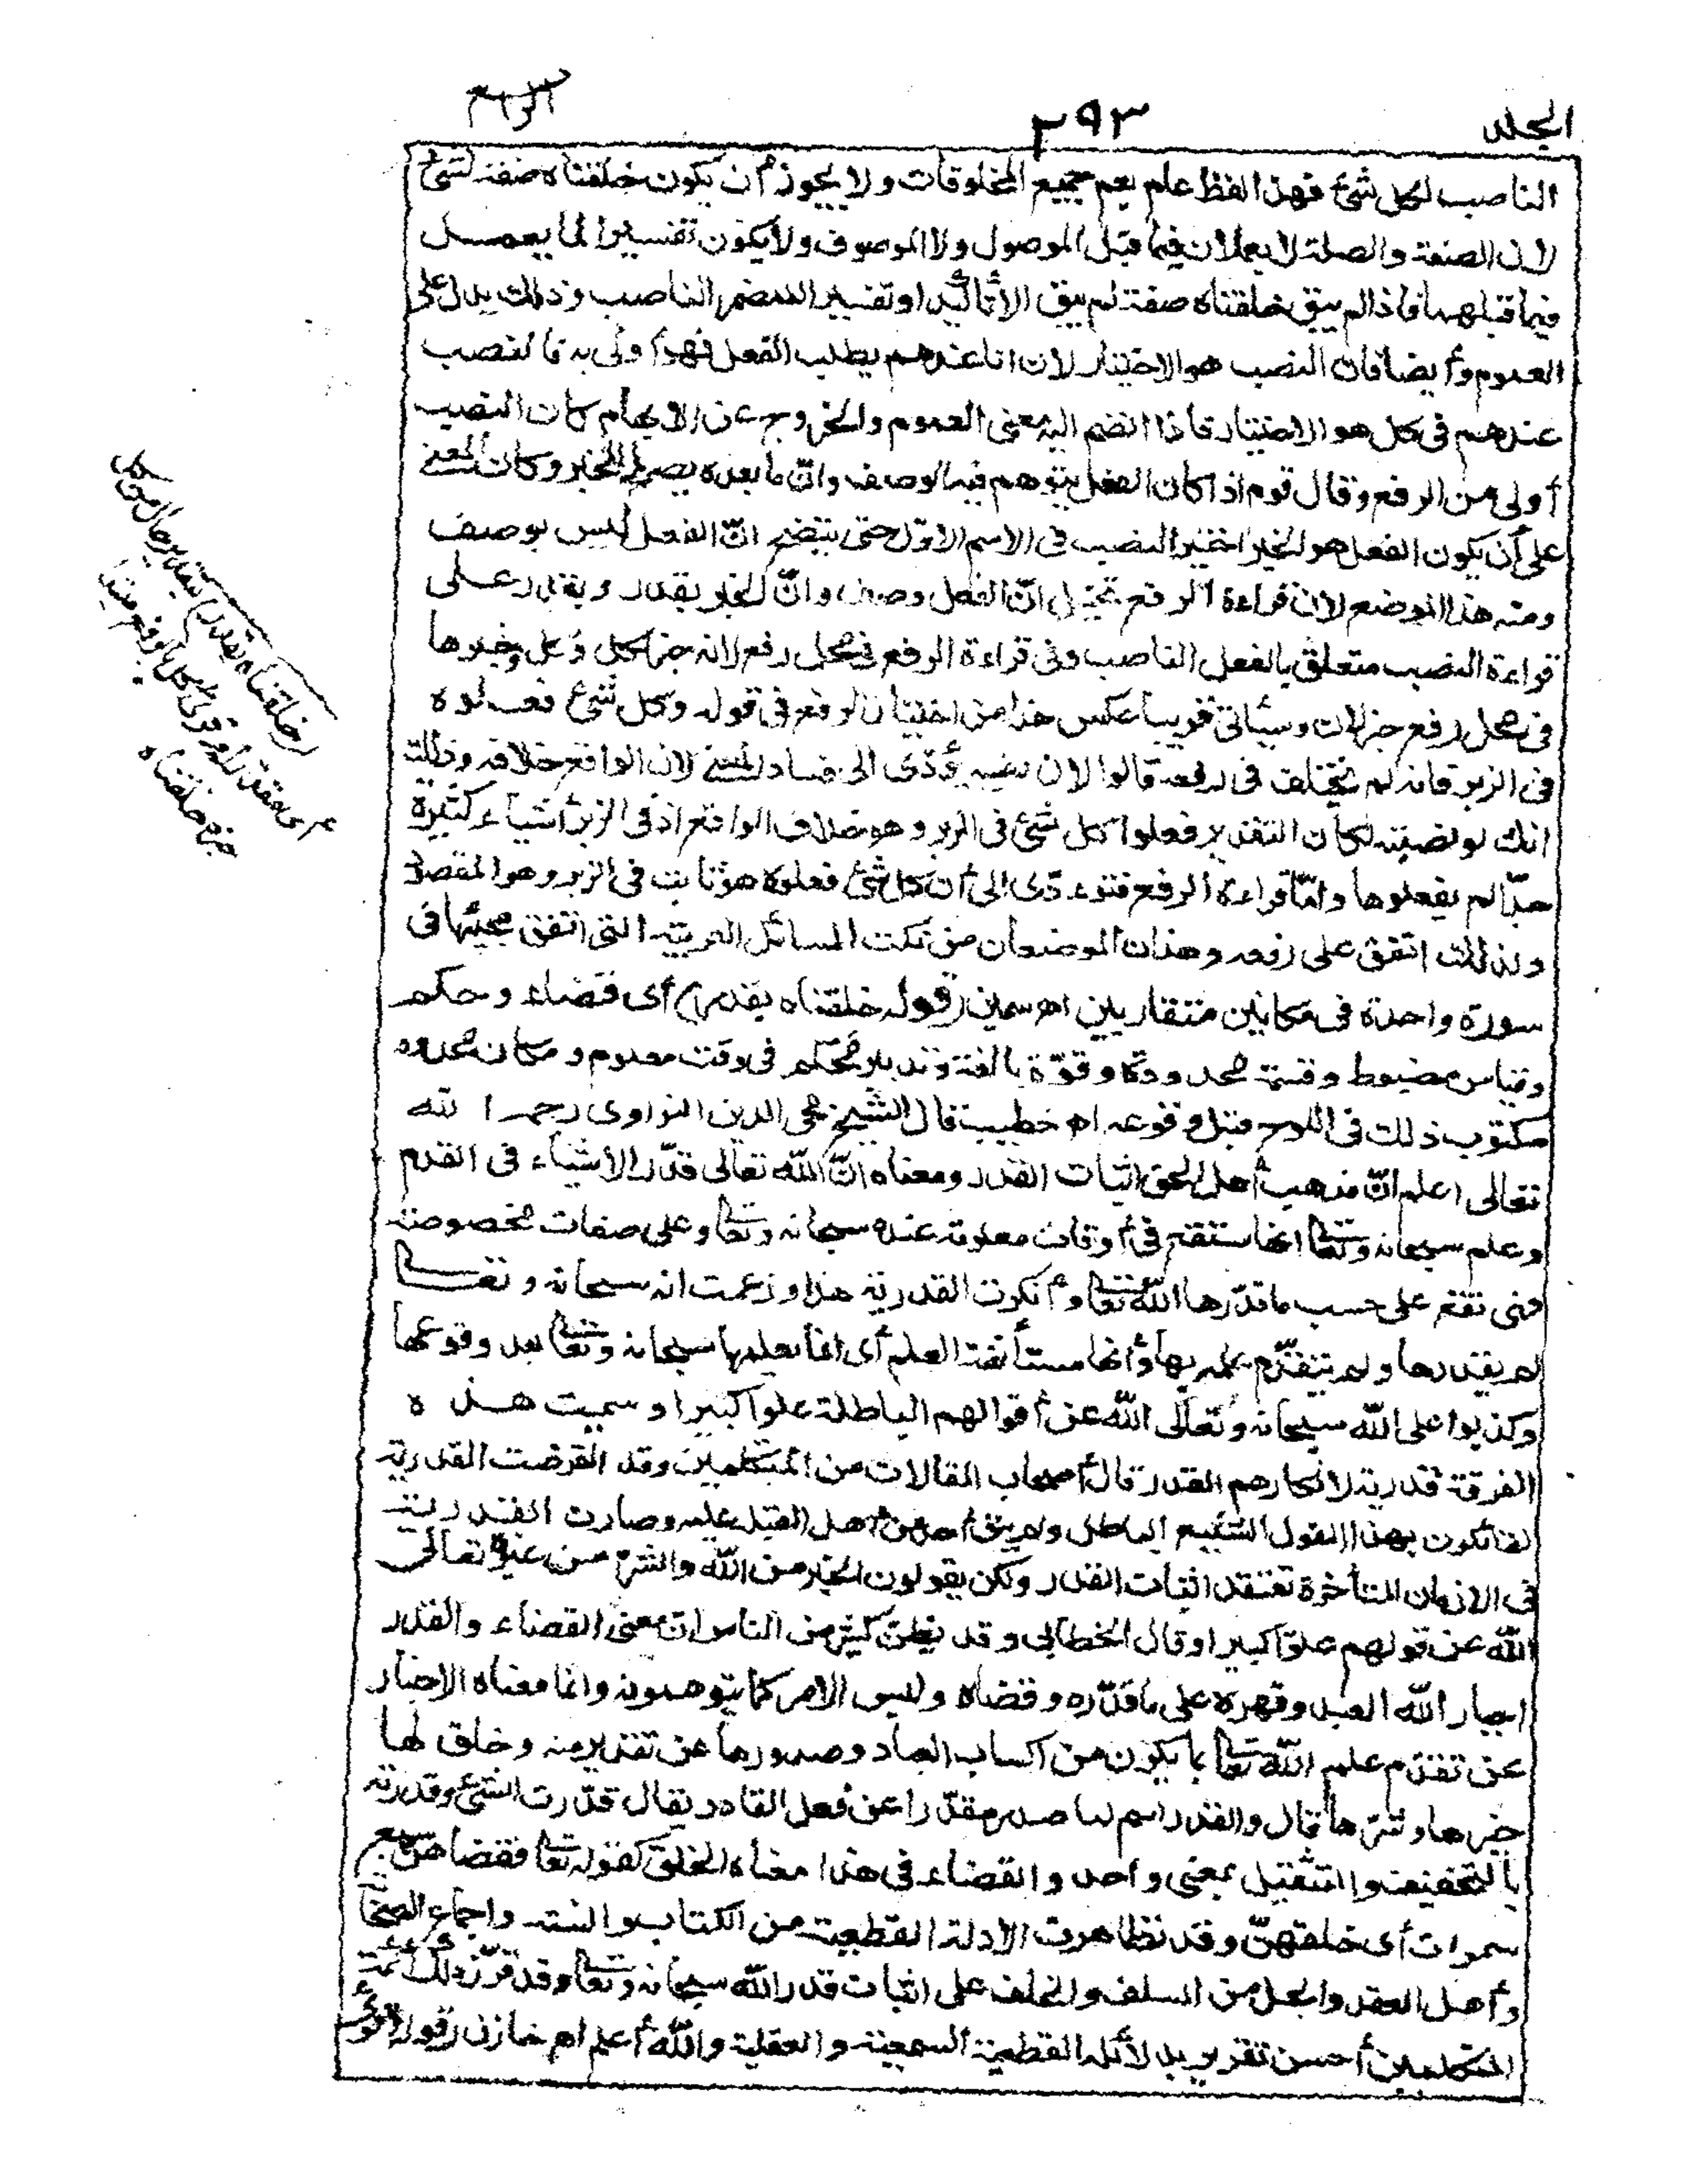 المجلد
٢٩٣
الرابع
الناصب لكل شئ فهذا لفظ عام يعم جميع المخلوقات ولا يجوز أن يكون خلقناه صفة لشئ
لان الصفة والصلة لا يعملان فيما قبل الموصول ولا الموصوف ولا يكون تفسيرا لما يعمل
فيما قبلهما فاذا لم يبق خلقناه صفة لم يبق الا تأكيد او تفسير للمضمر الناصب وذلك يدل على
العموم وأيضا فان النصب هو الاختيار لان انا عندهم يطلب الفعل فهو أولى به فالنصب
عندهم في كل هو الاختيار فاذا انضم اليه معنى العموم والخروج عن الايهام كان النصب
أولى من الرفع وقال قوم اذا كان الفعل يتوهم فيه الوصف وانّ ما بعده يصلح للخبر وكان المعنى
على أن يكون الفعل هو الخبر اختير النصب في الاسم الاوّل حتى يتضح انّ الفعل ليس بوصف
ومنه هذا الموضع لان قراءة الرفع تخيل انّ الفعل وصف وانّ الخبر بقدر وبقدر على
قراءة النصب متعلق بالفعل الناصب وفي قراءة الرفع في محل رفع لانه خبر لكل وكل وخبرها
في محل رفع خبر لان وسيأتي قريبا عكس هذا من اختيار الرفع في قوله وكل شئ فعلوه
في الزبر فانه لم يختلف في رفعه قالوا لان نصبه يؤدّى الى فساد المعنى لان الواقع خلافه وذلك
انك لو نصبته لكان التقدير فعلوا كل شئ في الزبر وهو خلاف الواقع اذ في الزبر أشياء كثيرة
جدّا لم يفعلوها وامّا قراءة الرفع فتؤدّى الى أن كل شئ فعلوه هو ثابت في الزبر وهو المقصود
ولذلك اتفق على رفعه وهذان الموضعان من نكت المسائل العربية التي اتفق مجيئها في
سورة واحدة في مكانين متقاربين اه سمين (قوله خلقناه بقدر) أى قضاء وحكم
وقياس مضبوط وقسمة محدودة وقوّة بالغة وتدبير محكم في وقت معلوم ومكان محدود
مكتوب ذلك في اللوح قبل وقوعه اه خطيب قال الشيخ محي الدين النواوى رحمه الله
تعالى اعلم انّ مذهب أهل الحق اثبات القدر ومعناه انّ الله تعالى قدّر الاشياء في القدم
وعلم سبحانه وتعالى انها ستقع في أوقات معلومة عنده سبحانه وتعالى وعلى صفات مخصوصة
فهى تقع على حسب ما قدّرها الله تعالى وأنكرت القدرية هذا وزعمت انه سبحانه وتعالى
لم يقدرها ولم يتقدّم علمه بها وأنها مستأنفة العلم أى انما يعلمها سبحانه وتعالى بعد وقوعها
وكذبوا على الله سبحانه وتعالى الله عن أقوالهم الباطلة علوا كبيرا وسميت هذه
الفرقة قدرية لانكارهم القدر قال أصحاب المقالات من المتكلمين وقد انقرضت القدرية
القائلون بهذا القول الشنيع الباطل ولم يبق أحد من أهل القبلة عليه وصارت القدرية
في الازمان المتأخرة تعتقد اثبات القدر ولكن يقولون الخير من الله والشرّ من غيره تعالى
الله عن قولهم علوّا كبيرا وقال الخطابي وقد يظن كثير من الناس انّ معنى القضاء والقدر
اجبار الله العبد وقهره على ما قدّره وقضاه وليس الامر كما يتوهمونه وانما معناه الاخبار
عن تقدّم علم الله تعالى بما يكون من اكساب العباد وصدورها عن تقدير منه وخلق لها
خيرها وشرّها قال والقدر اسم لما صدر مقدّرا عن فعل القادر يقال قدّرت الشئ وقدرته
بالتخفيف والتثقيل بمعنى واحد والقضاء في هذا معناه الخلق كقوله تعالى فقضاهنّ سبع
سموات أى خلقهنّ وقد تظاهرت الأدلة القطعية من الكتاب والسنة واجماع الصحابة
وأهل العقد والحل من السلف والخلف على اثبات قدر الله سبحانه وتعالى وقد قرّر ذلك أئمة
المتكلمين أحسن تقرير بدلائله القطعية السمعية والعقلية والله أعلم اه خازن (قوله
(خلقناه بقدر) بتقدير حال من كل
أى مقدرا وقرئ كل بالرفع مبتدأ
خبره خلقناه